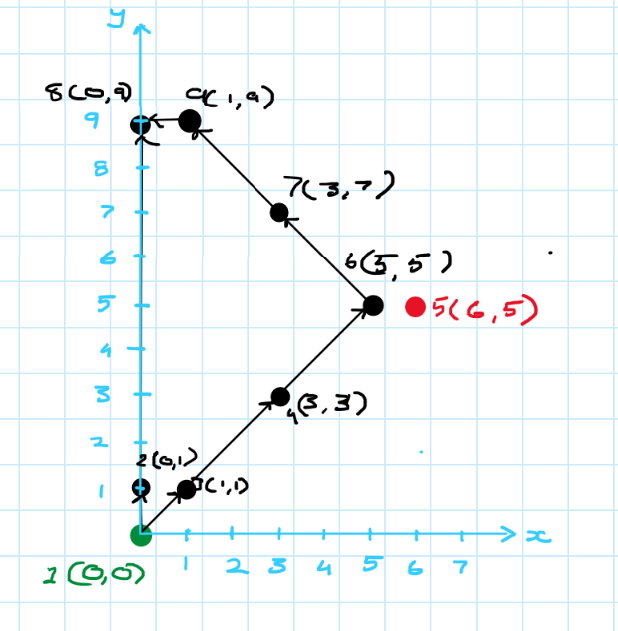 y
8(0,9) 9(1,9)
9
8
7 7(3,7)
6 6(5,5)
5 5(6,5)
4
3 4(3,3)
2 2(0,1)
1 3(1,1)
x
1 2 3 4 5 6 7
1(0,0)